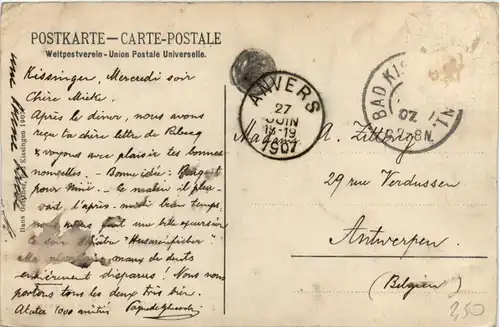 POSTKARTE — CARTE-POSTALE
Weltpostverein - Union Postale Universelle.
Kissingen, Mercredi soir
Chère Mieke,
Après le dîner, nous avons
reçu ta chère lettre de
& voyons avec plaisir tes bonnes
nouvelles. Bonne idée:
pour Mimi. le matin il pleu-
vait, l'après-midi beau temps,
nous avons fait une excursion
le soir théâtre "Husarenfieber"
Ma maux de dents
entièrement disparus! Nous nous
portons tous les deux très bien.
1000 amitiés
Kissingen 1905
ANVERS
27
JUIN
18-19
1907
BAD KIS
07
7-8N.
Madame A.
29 rue Verdussen
Antwerpen.
(Belgien)
350